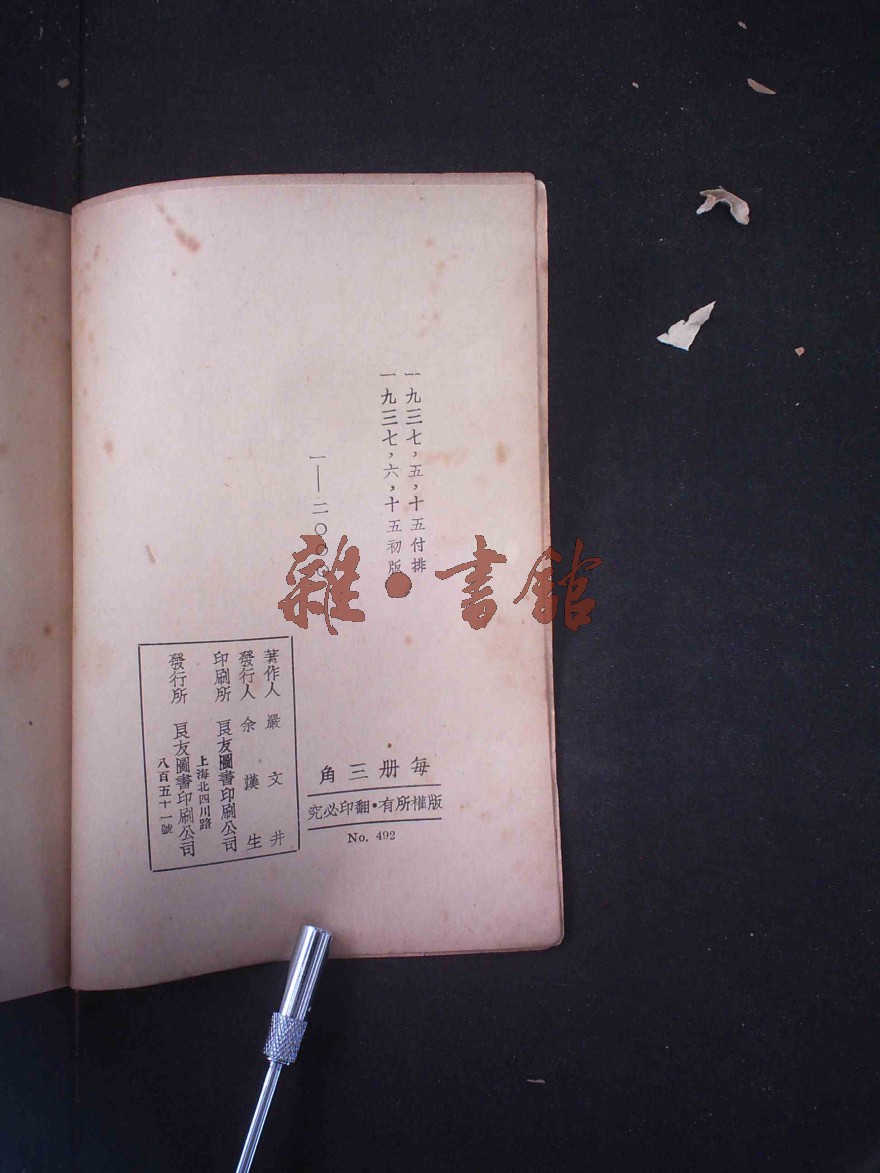 一九三七，五，十五付排
一九三七，六，十五初版
一——二〇〇〇
雜·書館
每册三角
版權所有·翻印必究
No. 492
著作人 嚴文井
發行人 余漢生
印刷所 良友圖書印刷公司
上海北四川路
發行所 良友圖書印刷公司
八百五十一號